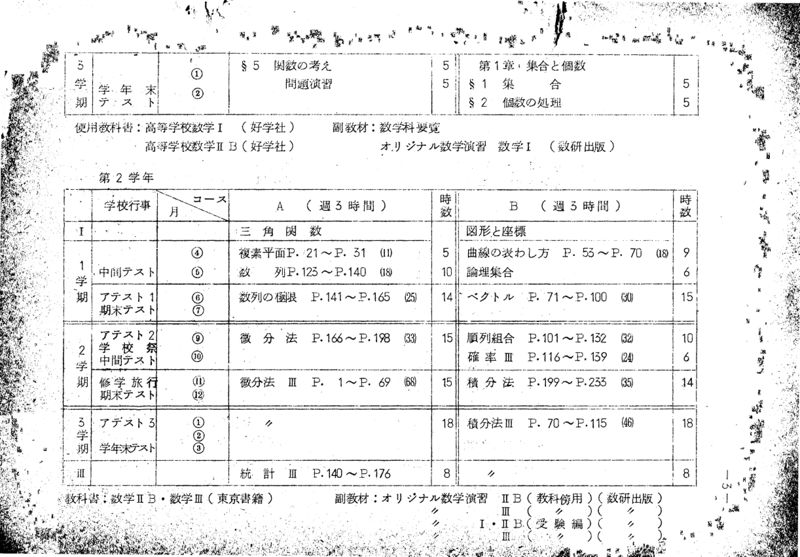 3学期 学年末テスト ① ② §5 関数の考え 5 第1章 集合と個数
問題演習 5 §1 集合 5
§2 個数の処理 5
使用教科書：高等学校数学Ⅰ（好学社） 副教材：数学科要覧
高等学校数学ⅡB（好学社） オリジナル数学演習 数学Ⅰ（数研出版）
第2学年
学校行事 月 コース A （週3時間） 時数 B （週3時間） 時数
Ⅰ 三角関数 図形と座標
1学期 ④ 複素平面P.21～P.31 (11) 5 曲線の表わし方 P.53～P.70 (18) 9
中間テスト ⑤ 数列P.123～P.140 (18) 10 論理集合 6
アテスト1 ⑥ 数列の極限 P.141～P.165 (25) 14 ベクトル P.71～P.100 (30) 15
期末テスト ⑦
2学期 アテスト2 ⑨ 微分法 P.166～P.198 (33) 15 順列組合 P.101～P.132 (32) 10
学校祭
中間テスト ⑩ 確率Ⅲ P.116～P.139 (24) 6
修学旅行 ⑪ 微分法Ⅲ P.1～P.69 (68) 15 積分法 P.199～P.233 (35) 14
期末テスト ⑫
3学期 アテスト3 ① 〃 18 積分法Ⅲ P.70～P.115 (46) 18
②
学年末テスト ③
Ⅲ 統計Ⅲ P.140～P.176 8 〃 8
教科書：数学ⅡB・数学Ⅲ（東京書籍） 副教材：オリジナル数学演習 ⅡB（教科傍用）（数研出版）
〃 Ⅲ（〃）（〃）
〃 Ⅰ・ⅡB（受験編）（〃）
〃 Ⅲ（〃）（〃）
—3—